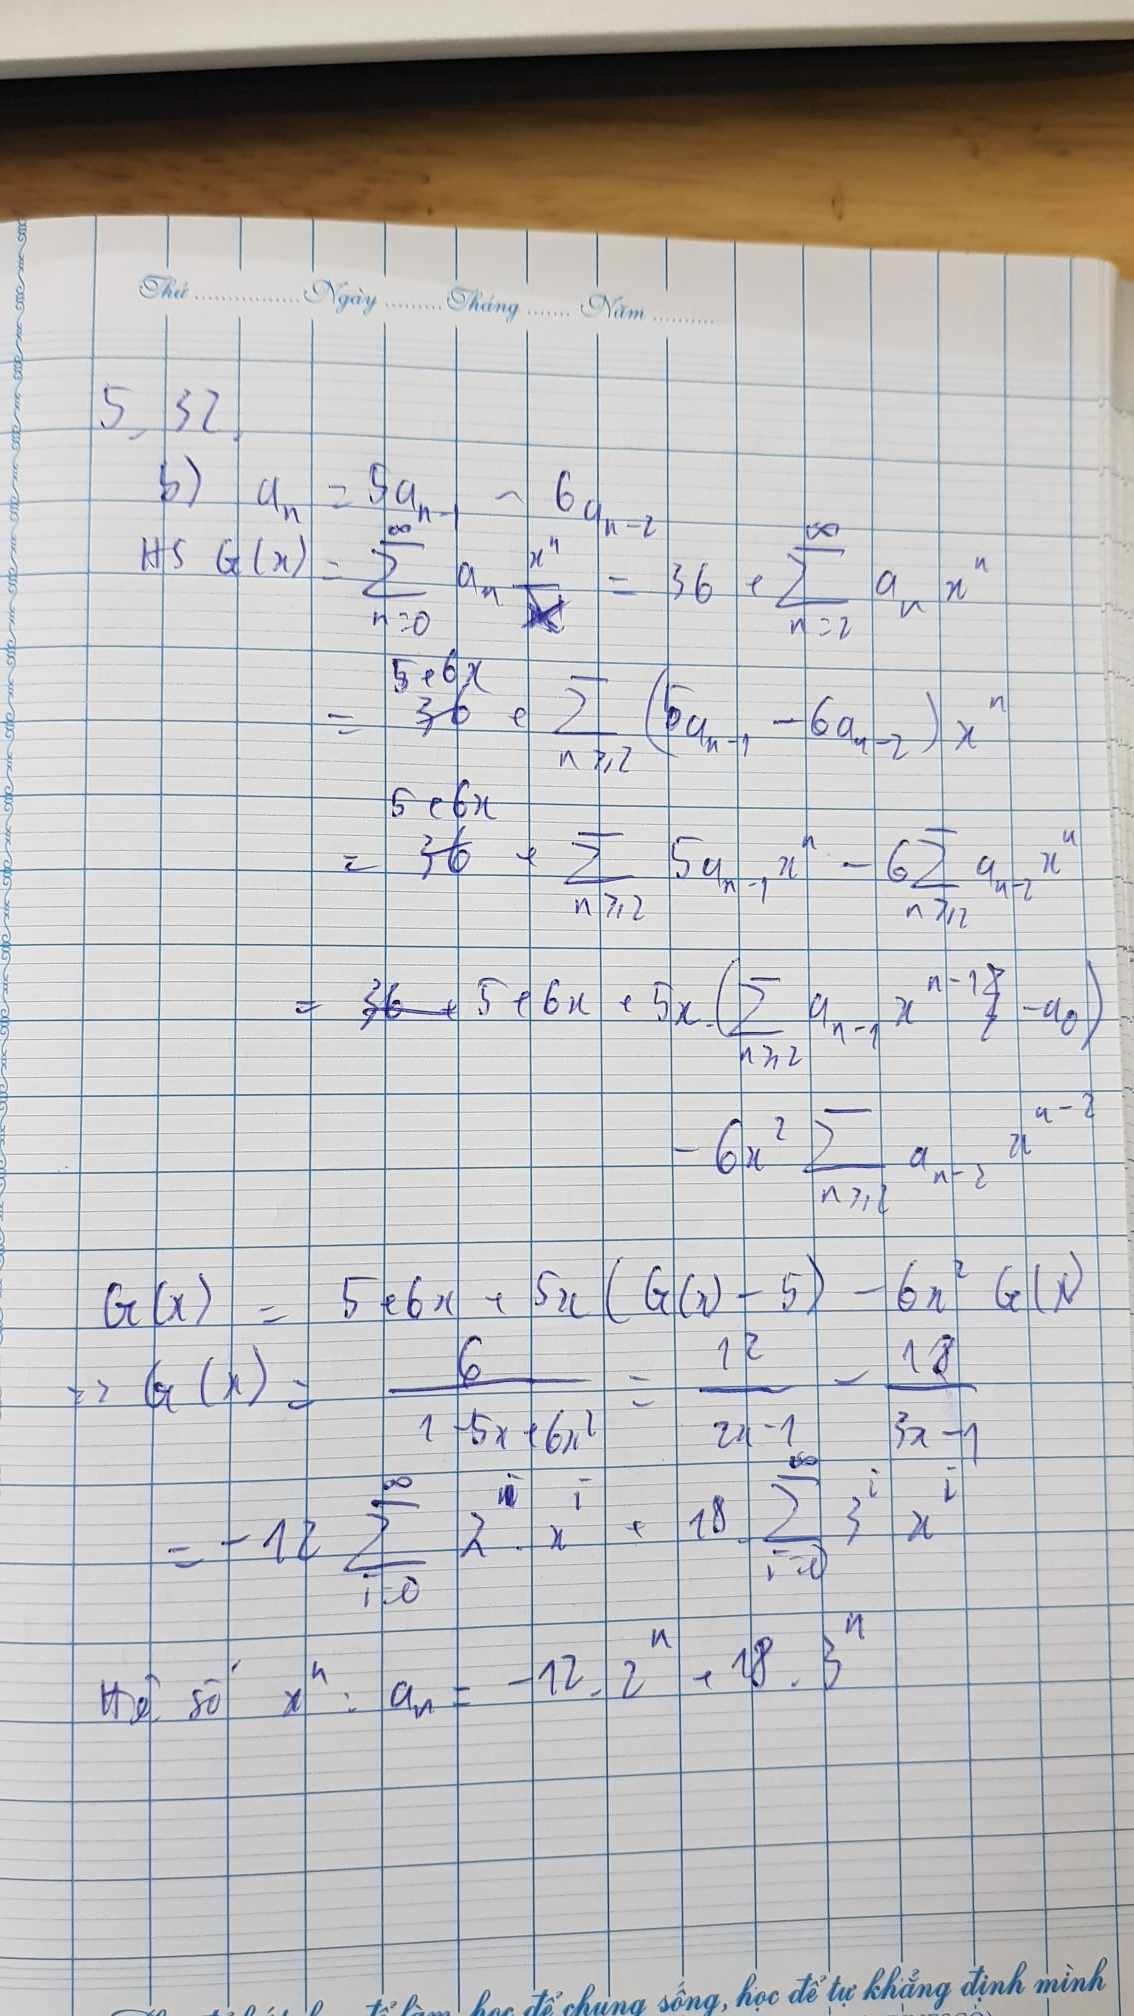 Thứ ................. Ngày ......... Tháng ....... Năm ..........
5. 32.
b) aₙ = 5aₙ₋₁ - 6aₙ₋₂
HS G(x) = ∑_{n=0}^{∞} aₙ xⁿ = 36 + ∑_{n=2}^{∞} aₙ xⁿ
5+6x
= 36 + ∑_{n≥2} (5aₙ₋₁ - 6aₙ₋₂) xⁿ
5+6x
= 36 + ∑_{n≥2} 5aₙ₋₁ xⁿ - 6∑_{n≥2} aₙ₋₂ xⁿ
= 36 + 5+6x + 5x.(∑_{n≥2} aₙ₋₁ xⁿ⁻¹ - a₀)
- 6x² ∑_{n≥2} aₙ₋₂ xⁿ⁻²
G(x) = 5+6x + 5x(G(x) - 5) - 6x² G(x)
=> G(x) = 6/(1-5x+6x²) = 12/(2x-1) - 18/(3x-1)
= -12 ∑_{i=0}^{∞} 2ⁱ. xⁱ + 18. ∑_{i=0}^{∞} 3ⁱ xⁱ
Hệ số xⁿ: aₙ = -12. 2ⁿ + 18. 3ⁿ
học để chung sống, học để tự khẳng định mình